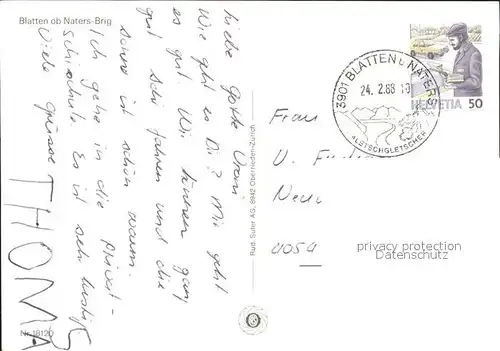 Blatten ob Naters-Brig
Liebe Gotte Vreni
Wie geht es Dir? Mir geht
es gut. Wir können ganz
gut Ski fahren und die
Sonne ist schön warm.
Ich gehe in die Privat-
skischule. Es ist sehr lustig.
Viele Grüsse
THOMAS
Nr. 18120
Rud. Suter AG, 8942 Oberrieden-Zürich
3901 BLATTEN b. NATERS
24. 2. 88
ALETSCHGLETSCHER
HELVETIA 50
Frau
U.
4054
privacy protection
Datenschutz